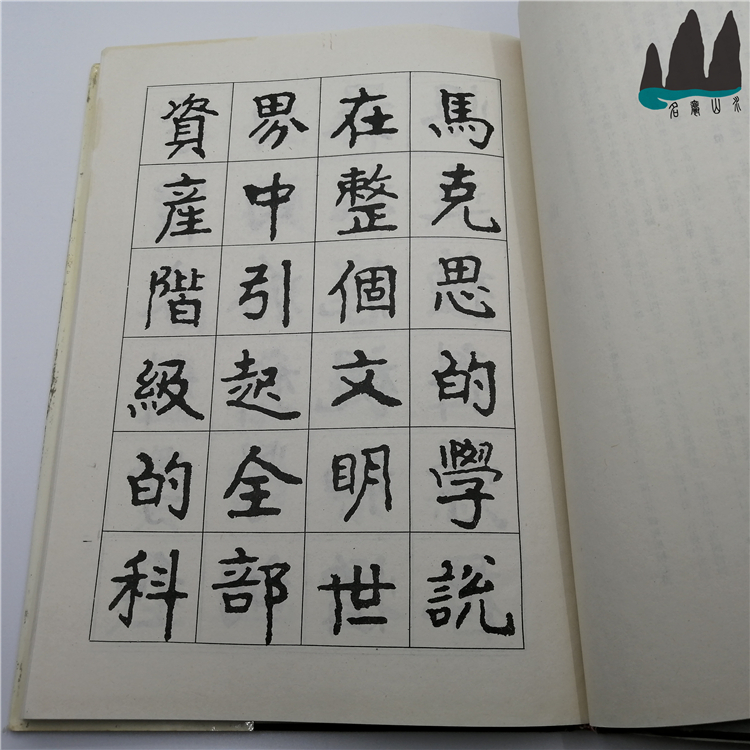 馬克思的學說
在整個文明世
界中引起全部
資產階級的科
名窯山水